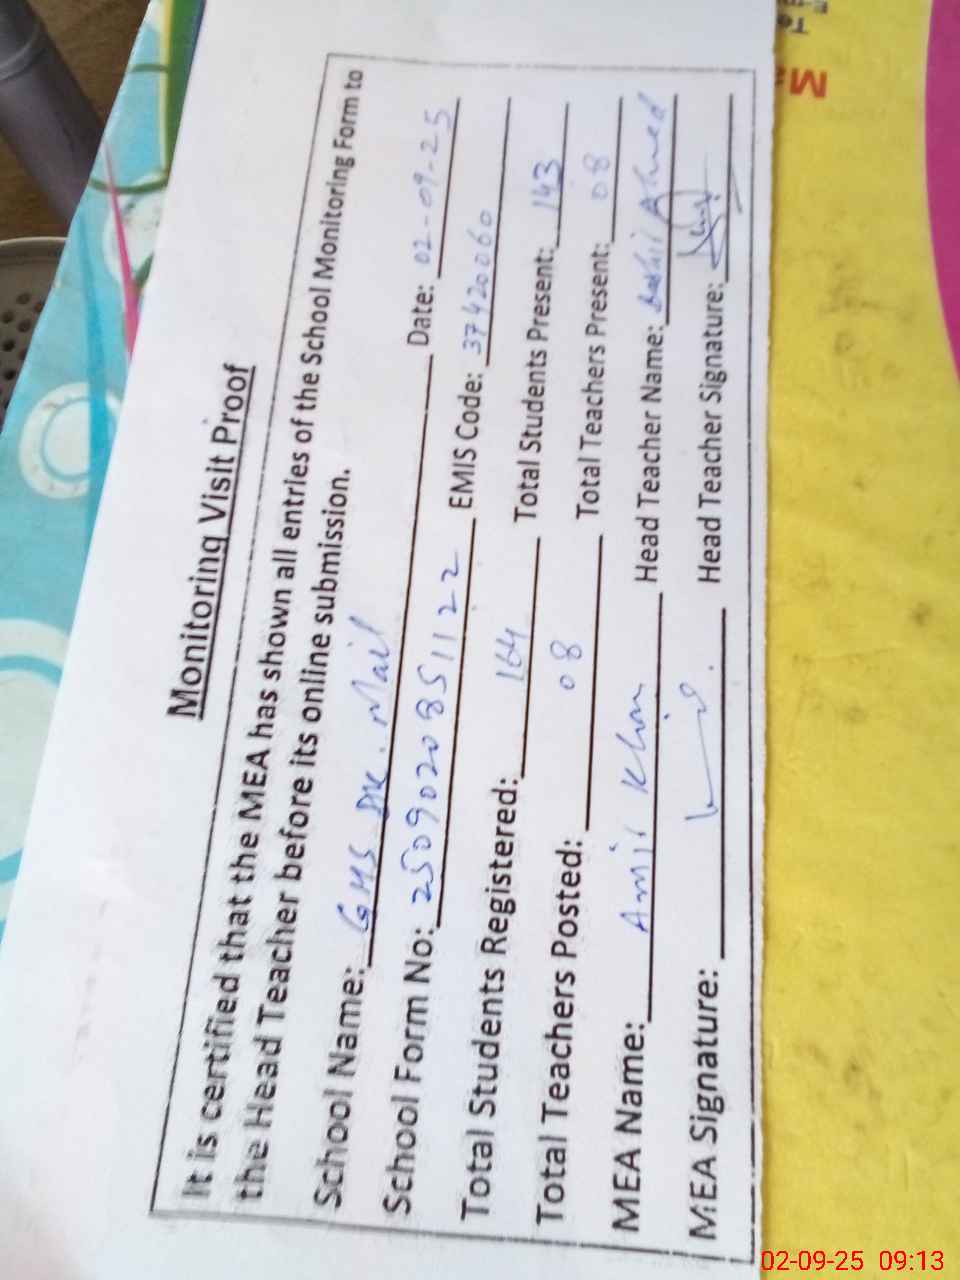 Monitoring Visit Proof
It is certified that the MEA has shown all entries of the School Monitoring Form to
the Head Teacher before its online submission.
School Name: GMS Dk. Mail Date: 02-09-25
School Form No: 2509020851122 EMIS Code: 37420060
Total Students Registered: 164 Total Students Present: 143
Total Teachers Posted: 08 Total Teachers Present: 08
MEA Name: Amir Khan Head Teacher Name: Bashir Ahmed
MEA Signature: Head Teacher Signature:
02-09-25 09:13